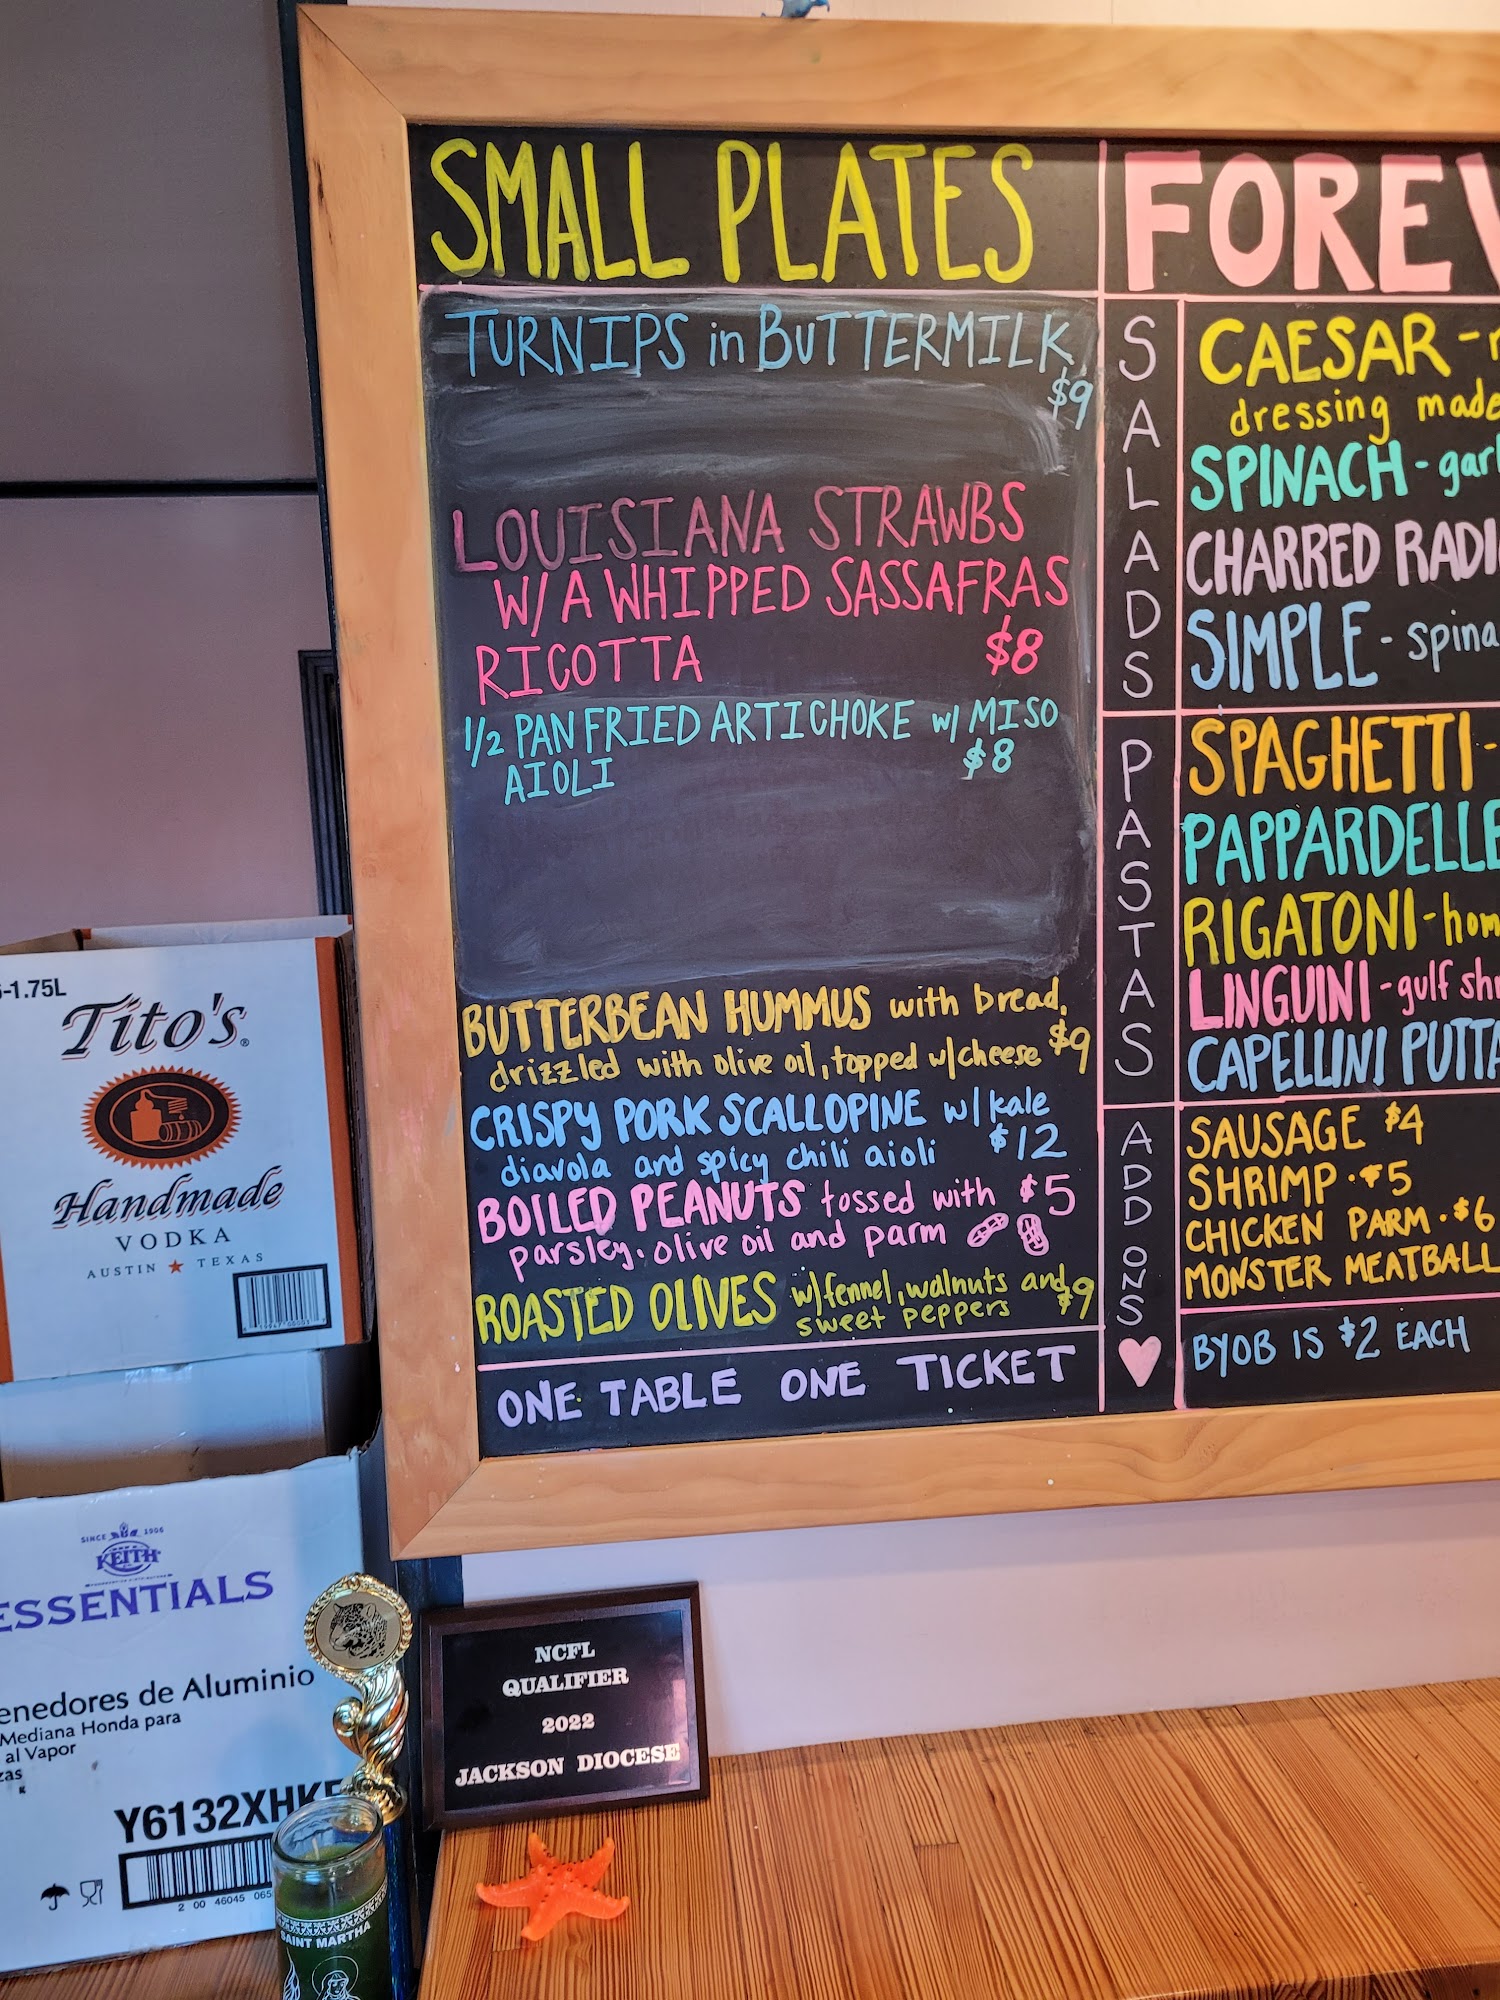 SMALL PLATES
TURNIPS in BUTTERMILK
$9
LOUISIANA STRAWBS
W/ A WHIPPED SASSAFRAS
RICOTTA $8
1/2 PAN FRIED ARTICHOKE w/ MISO
AIOLI $8
BUTTERBEAN HUMMUS with bread,
drizzled with olive oil, topped w/ cheese $9
CRISPY PORK SCALLOPINE w/ kale
diavola and spicy chili aioli $12
BOILED PEANUTS tossed with $5
parsley, olive oil and parm
ROASTED OLIVES w/ fennel, walnuts and
sweet peppers $9
ONE TABLE ONE TICKET
FOREV
SALADS
CAESAR -
dressing made
SPINACH - garl
CHARRED RADI
SIMPLE - spina
PASTAS
SPAGHETTI -
PAPPARDELLE
RIGATONI - hom
LINGUINI - gulf shr
CAPELLINI PUTTA
ADD ONS
SAUSAGE $4
SHRIMP · $5
CHICKEN PARM · $6
MONSTER MEATBALL
BYOB IS $2 EACH
-1.75L
Tito's®
Handmade
VODKA
AUSTIN ★ TEXAS
SINCE 1906
KEITH
ESSENTIALS
enedores de Aluminio
Mediana Honda para
al Vapor
zas
Y6132XHK
2 00 46045 065
NCFL
QUALIFIER
2022
JACKSON DIOCESE
SAINT MARTHA